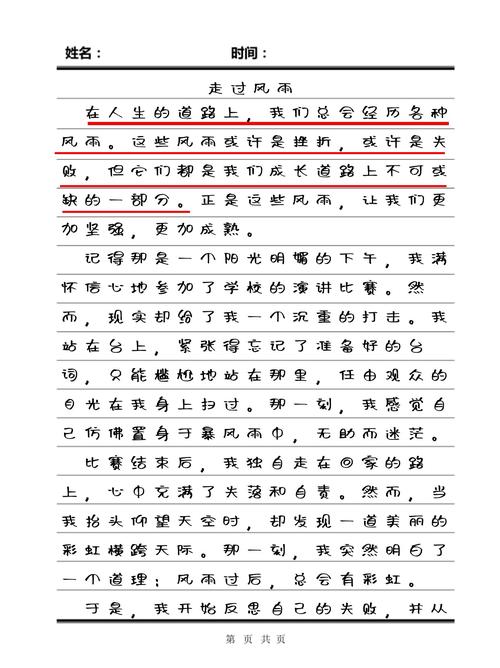 姓名： 时间：
走过风雨
在人生的道路上，我们总会经历各种
风雨。这些风雨或许是挫折，或许是失
败，但它们都是我们成长道路上不可或
缺的一部分。正是这些风雨，让我们更
加坚强，更加成熟。
记得那是一个阳光明媚的下午，我满
怀信心地参加了学校的演讲比赛。然
而，现实却给了我一个沉重的打击。我
站在台上，紧张得忘记了准备好的台
词，只能尴尬地站在那里，任由观众的
目光在我身上扫过。那一刻，我感觉自
己仿佛置身于暴风雨中，无助而迷茫。
比赛结束后，我独自走在回家的路
上，心中充满了失落和自责。然而，当
我抬头仰望天空时，却发现一道美丽的
彩虹横跨天际。那一刻，我突然明白了
一个道理：风雨过后，总会有彩虹。
于是，我开始反思自己的失败，并从
第 页 共 页